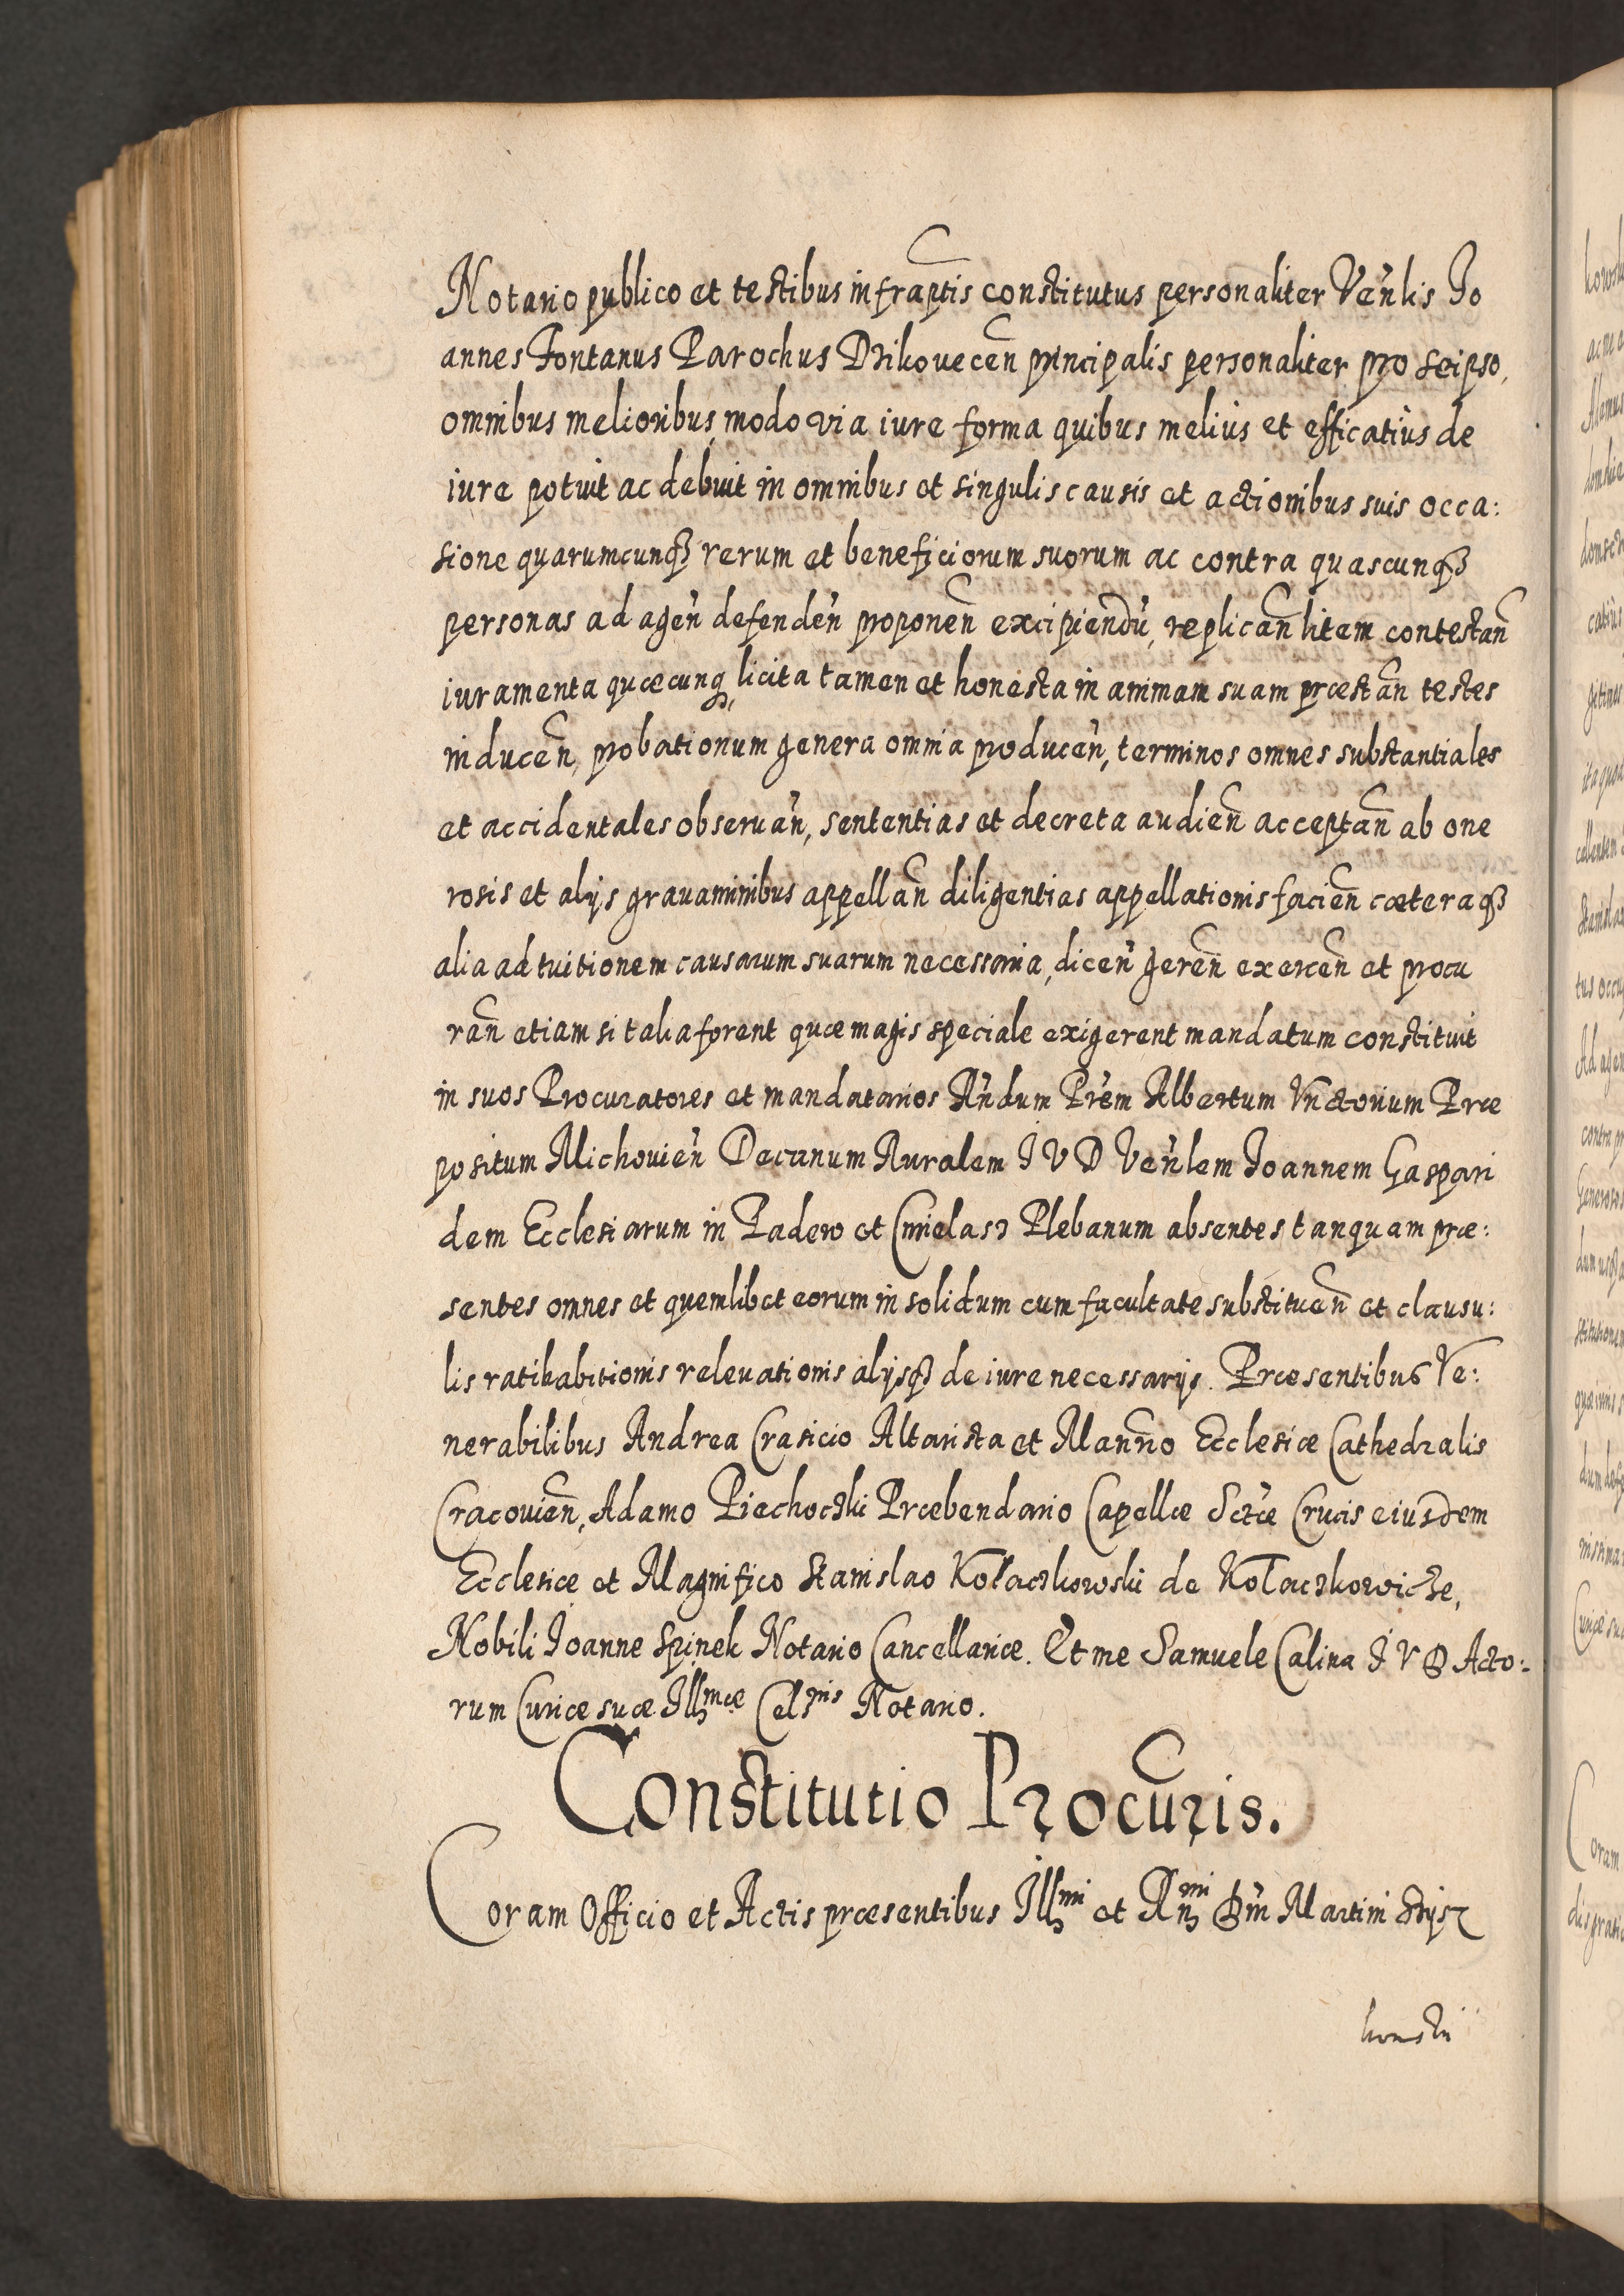 Notario publico et testibus infraptis constitutus personaliter Ven̄lis Jo
annes Fontanus Parochus Dzikovecen̄ principalis personaliter pro seipso,
omnibus melioribus, modo via iure forma quibus melius et efficatius de
iure potuit ac debuit in omnibus et singulis causis et actionibus suis occa:
sione quarumcunqꝫ rerum et beneficiorum suorum ac contra quascunqꝫ
personas ad agen̄ defenden̄ proponen̄ excipiendū, replican̄ litem contestan̄
iuramenta quæcunqꝫ, licita tamen et honesta in animam suam præstan̄ testes
inducen̄, probationum genera omnia producen̄, terminos omnes substantiales
et accidentales obseruan̄, sententias et decreta audien̄ acceptan̄ ab one
rosis et alijs grauaminibus appellan̄ diligentias appellationis facien̄ cæteraqꝫ
alia ad tuitionem causarum suarum necessaria, dicen̄ geren̄ exercen̄ et procu
ran̄ etiam si talia forent quæ magis speciale exigerent mandatum constituit
in suos Procuratores et mandatarios Rn̄dum Prēm Albertum Vnctorium Præ
positum Michouien̄ Decanum Ruralem I V D Ven̄lem Joannem Gaspari
dem Ecclesiarum in Padew et Cmielasz Plebanum absentes tanquam præ:
sentes omnes et quemlibet eorum in solidum cum facultate substituen̄ et clausu:
lis ratihabitionis releuationis alijsqꝫ de iure necessarijs. Præsentibus Ve:
nerabilibus Andrea Crasicio Altarista et Mann̄o Ecclesiæ Cathedralis
Cracouien̄, Adamo Piechoczki Præbendario Capellæ Sctæ Crucis eiusdem
Ecclesiæ et Magnifico Stanislao Kołaczkowski de Kołaczkowicze,
Nobili Joanne Spinek Notario Cancellariæ. Et me Samuele Calina I V D Acto:
rum Curiæ suæ Illmæ Celnis Notario.
Constitutio Procuris.
Coram Officio et Actis præsentibus Illmi et Rnmi Dn̄i Martini Szysz